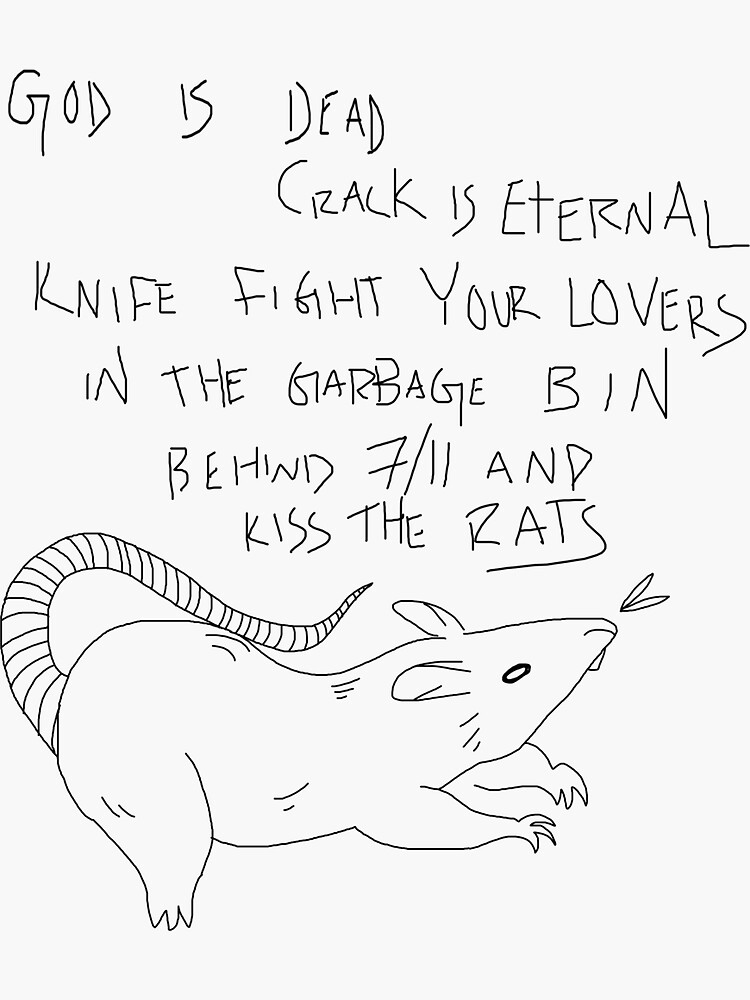 GOD IS DEAD
CRACK IS ETERNAL
KNIFE FIGHT YOUR LOVERS
IN THE GARBAGE BIN
BEHIND 7/11 AND
KISS THE RATS